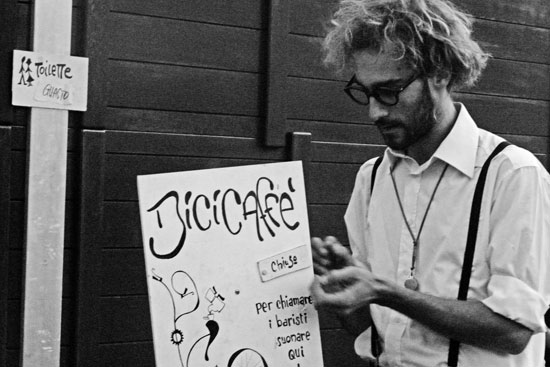 Toilette
GUASTO
BiciCaffè
Chiuso
Per chiamare
i baristi
suonare
qui